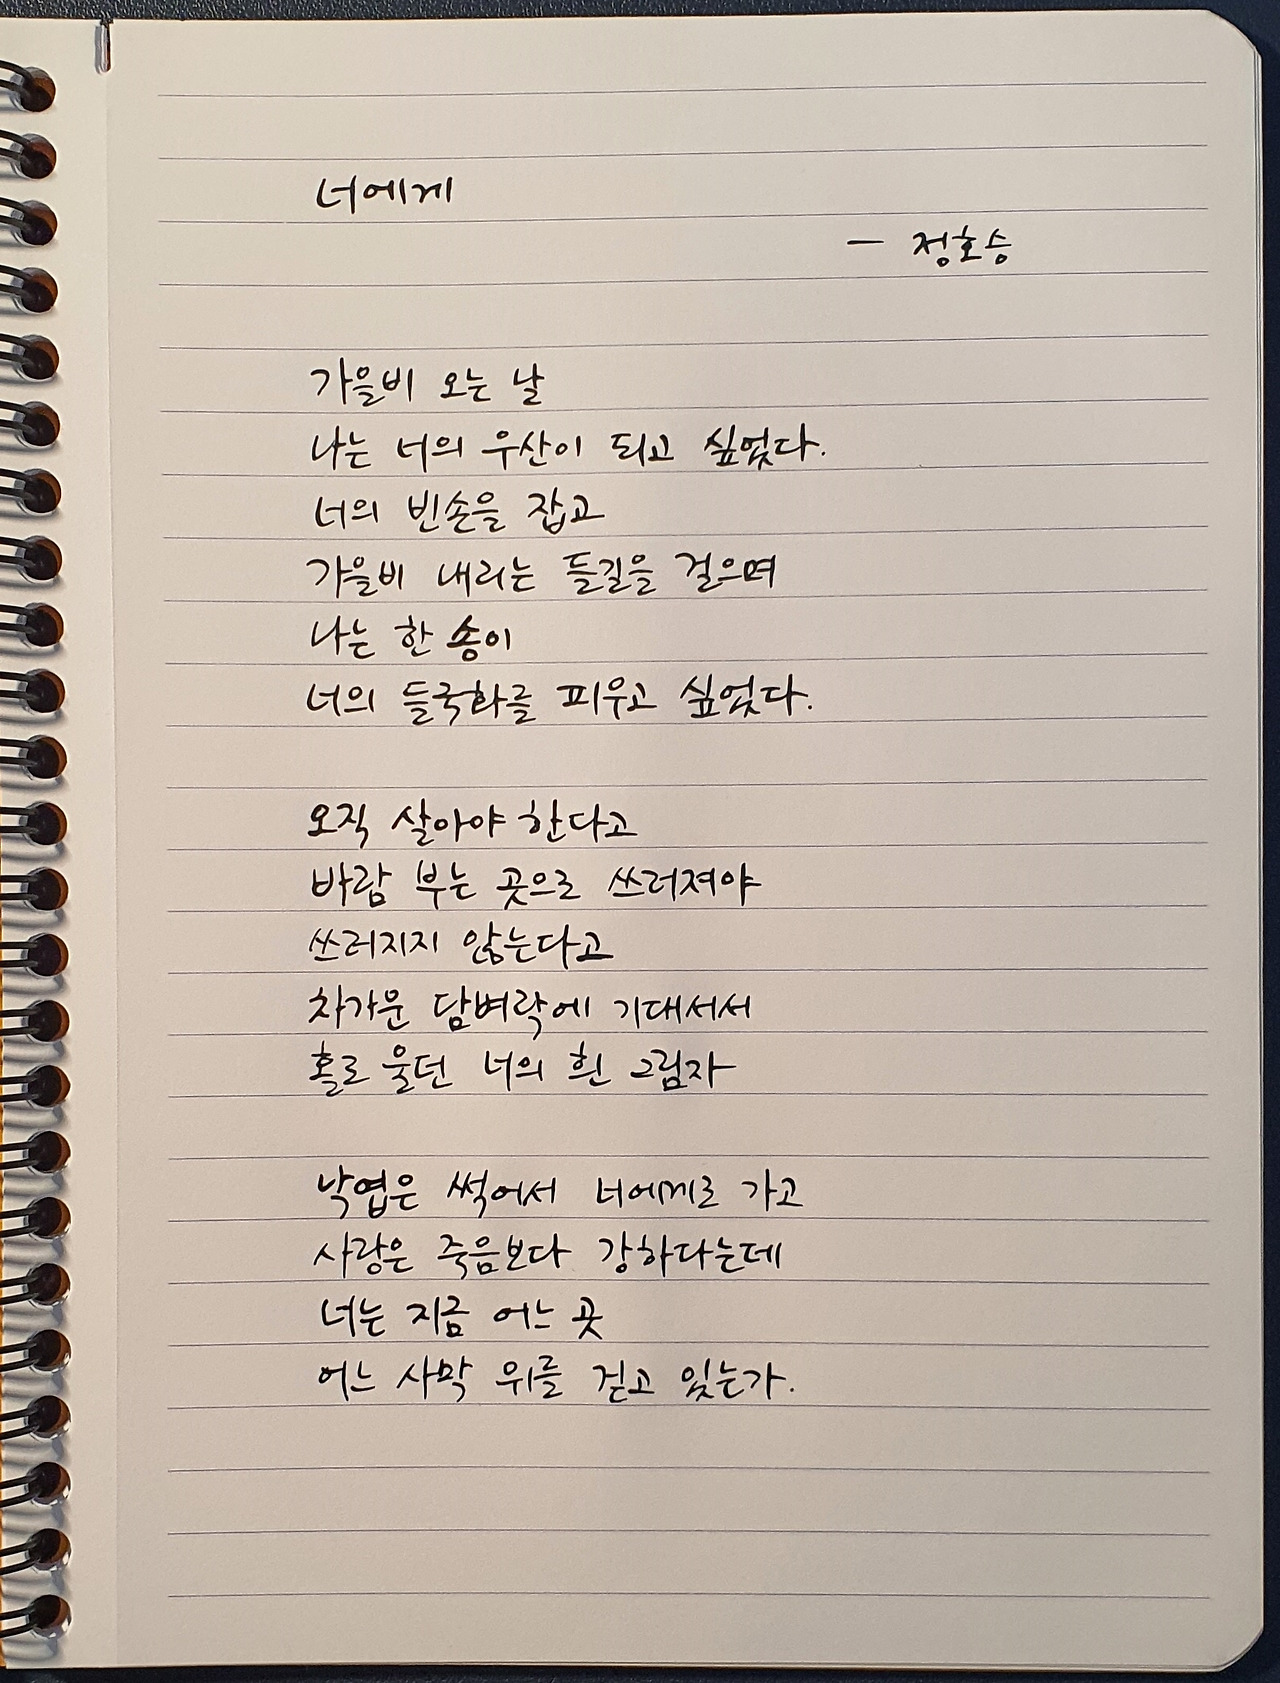 너에게
- 정호승
가을비 오는 날
나는 너의 우산이 되고 싶었다.
너의 빈손을 잡고
가을비 내리는 들길을 걸으며
나는 한 송이
너의 들국화를 피우고 싶었다.
오직 살아야 한다고
바람 부는 곳으로 쓰러져야
쓰러지지 않는다고
차가운 담벼락에 기대서서
홀로 울던 너의 흰 그림자
낙엽은 썩어서 너에게로 가고
사랑은 죽음보다 강하다는데
너는 지금 어느 곳
어느 사막 위를 걷고 있는가.